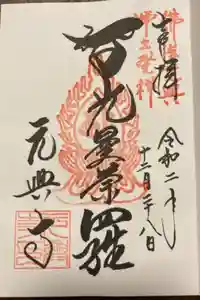 奉拝
令和二年
十二月二十八日
智光曼荼羅
元興寺